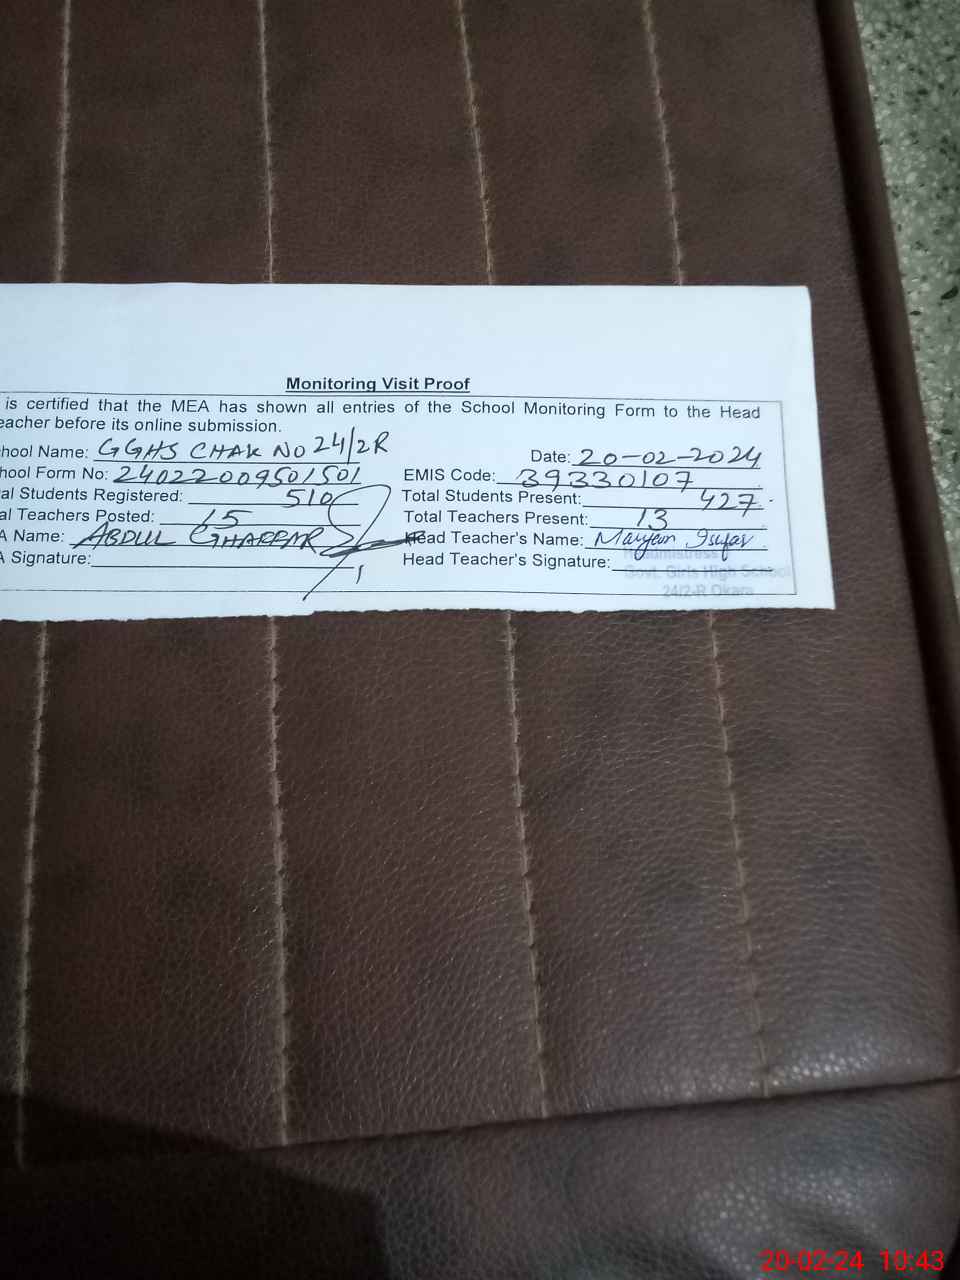 Monitoring Visit Proof
is certified that the MEA has shown all entries of the School Monitoring Form to the Head
eacher before its online submission.
hool Name: GGHS CHAK NO 24/2R
Date: 20-02-2024
hool Form No: 24022009501501 EMIS Code: 39330107
al Students Registered: 510 Total Students Present: 427
al Teachers Posted: 15 Total Teachers Present: 13
A Name: ABDUL GHAFFAR Head Teacher's Name: Maryam
A Signature: Head Teacher's Signature:
Headmistress
Govt. Girls High School
24/2-R Okara
20-02-24 10:43